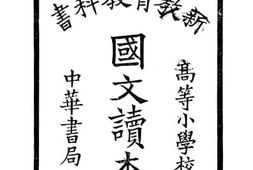 新教育教科書
高等小學校
國文讀本
中華書局